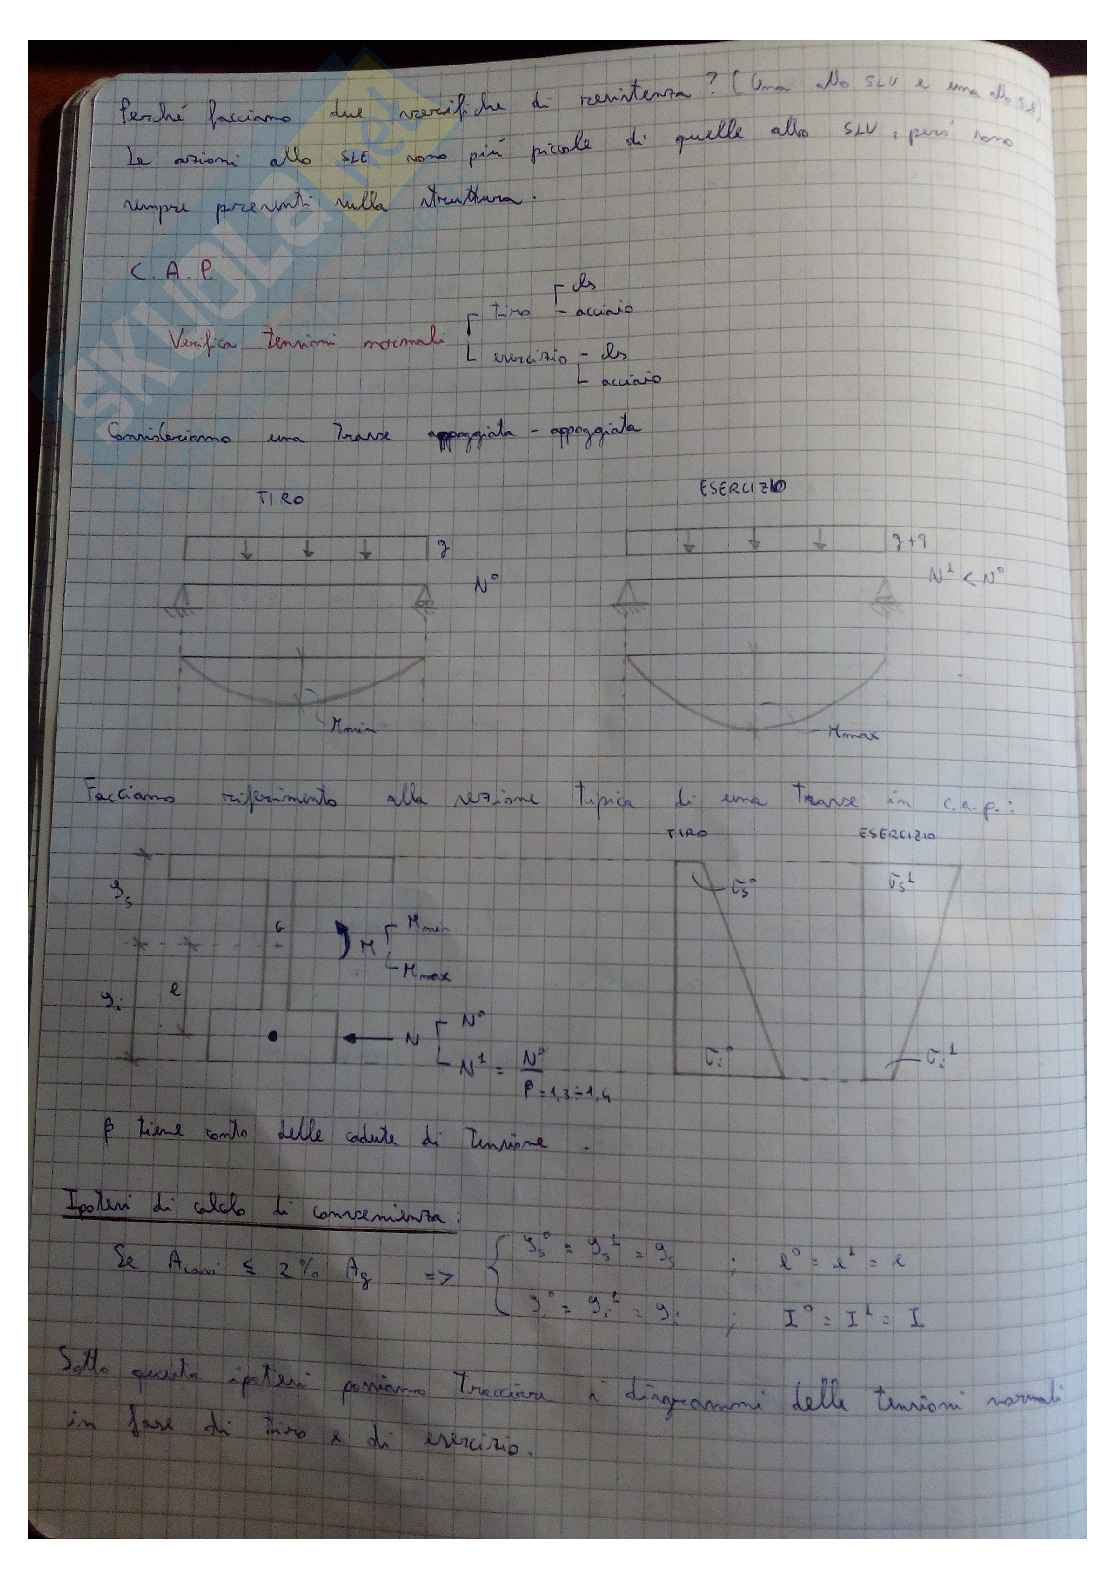 Perché facciamo due verifiche di resistenza? (Una allo SLU e una allo SLE)
Le azioni allo SLE sono più piccole di quelle allo SLU, però sono
sempre presenti sulla struttura.
C.A.P
Verifica tensioni normali
tiro
cls
acciaio
esercizio
cls
acciaio
Consideriamo una trave appoggiata - appoggiata
TIRO
ESERCIZIO
g
g+q
N°
N¹ < N°
Mmin
Mmax
Facciamo riferimento alla sezione tipica di una trave in c.a.p.:
TIRO
ESERCIZIO
ys
σs°
σs¹
G
M
Mmin
Mmax
yi
e
N
N°
N¹ = N° / β = 1,3÷1,4
σi°
σi¹
β tiene conto delle cadute di tensione.
Ipotesi di calcolo di convenienza:
Se Acavi ≤ 2% Ag => ys° = ys¹ = ys ; e° = e¹ = e
yi° = yi¹ = yi ; I° = I¹ = I
Sotto questa ipotesi possiamo tracciare i diagrammi delle tensioni normali
in fase di tiro e di esercizio.
SKUOLA.net